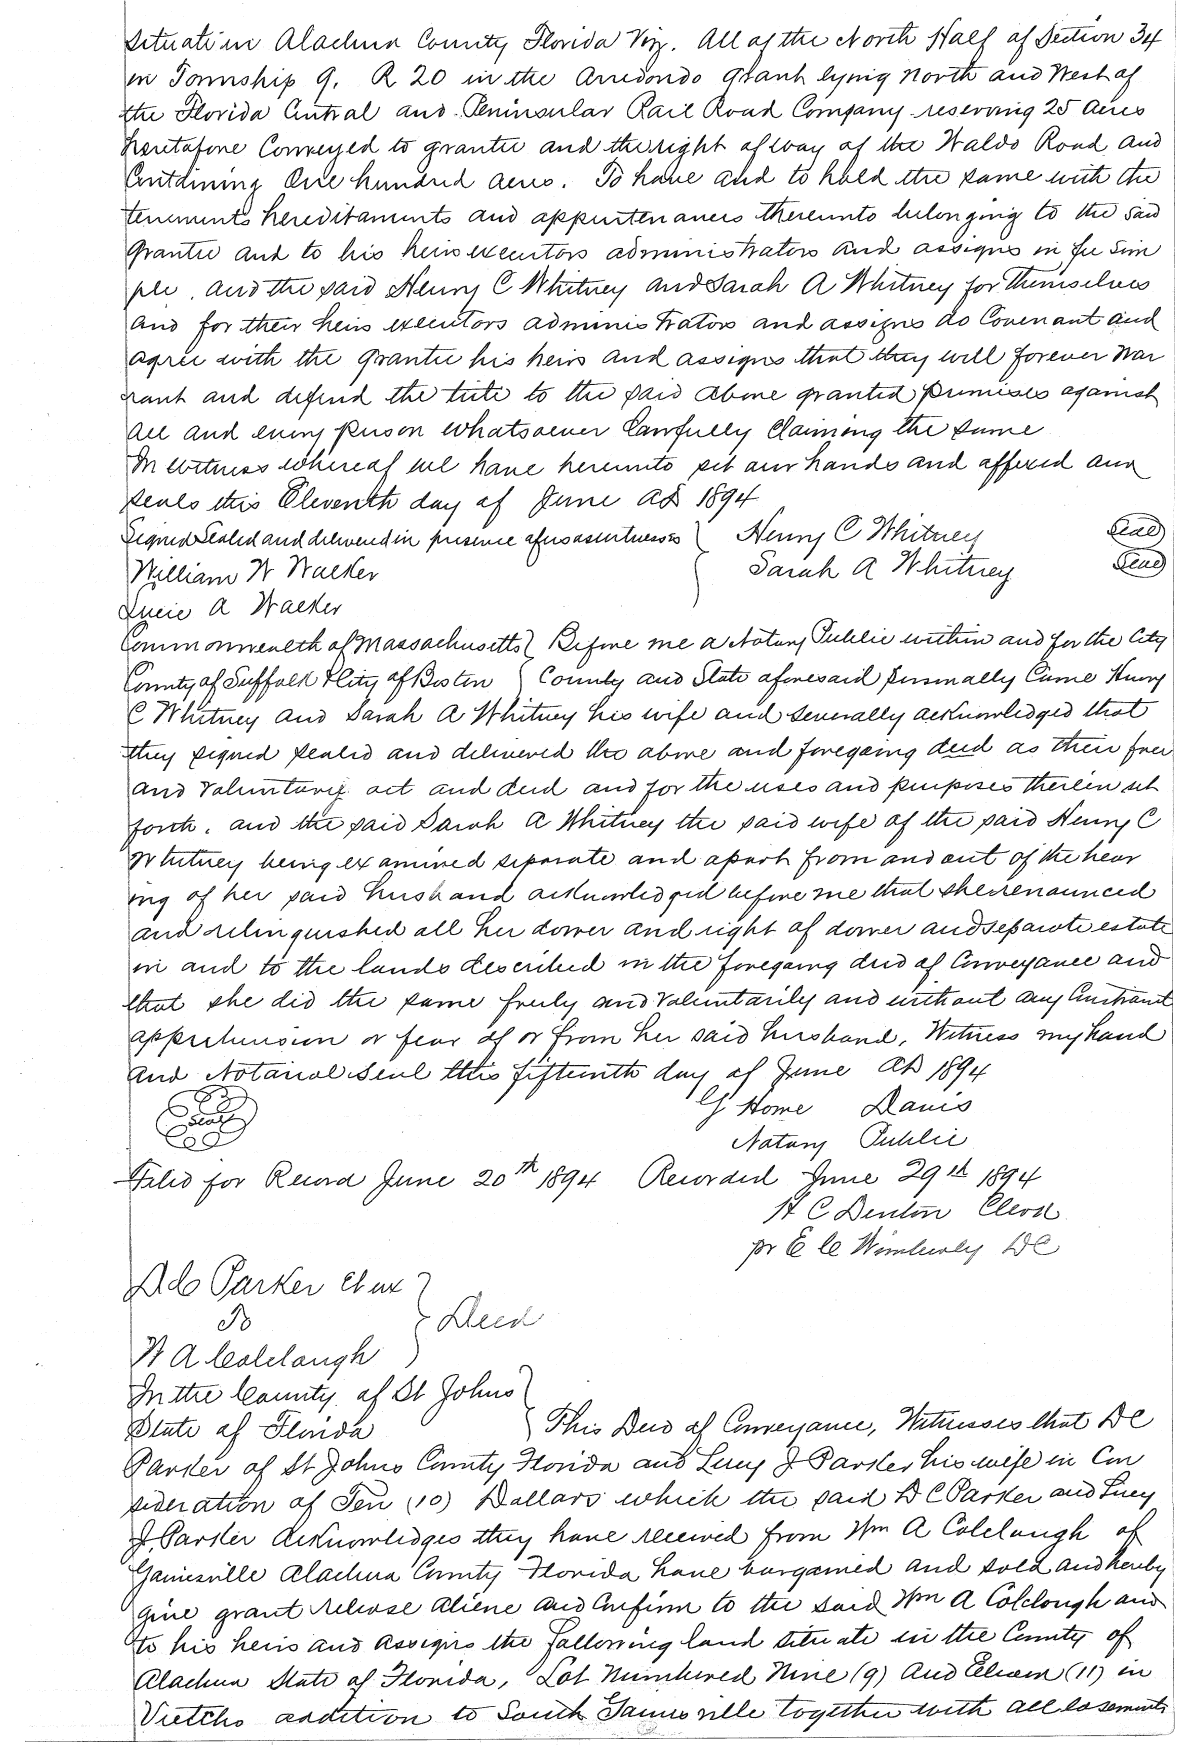 situate in Alachua County Florida Viz. All of the North Half of Section 34
in Township 9. R 20 in the Arredondo Grant lying North and West of
the Florida Central and Peninsular Rail Road Company reserving 25 acres
heretofore Conveyed to grantee and the right of way of the Waldo Road and
Containing One hundred acres. To have and to hold the same with the
tenements hereditaments and appurtenances thereunto belonging to the said
Grantee and to his heirs executors administrators and assigns in fee Sim
ple. and the said Henry C Whitney and Sarah A Whitney for themselves
and for their heirs executors administrators and assigns do Covenant and
agree with the Grantee his heirs and assigns that they will forever War
rant and defend the title to the said above granted premises against
all and every person whatsoever lawfully claiming the same
In witness whereof we have hereunto set our hands and affixed our
seals this Eleventh day of June AD 1894
Signed Sealed and delivered in presence of us as witnesses } Henry C Whitney (Seal)
William W Walker Sarah A Whitney (Seal)
Lucie A Walker
Commonwealth of Massachusetts } Before me a Notary Public within and for the City
County of Suffolk & City of Boston } County and State aforesaid personally Came Henry
C Whitney and Sarah A Whitney his wife and severally acknowledged that
they signed sealed and delivered the above and foregoing deed as their free
and Voluntary act and deed and for the uses and purposes therein set
forth. and the said Sarah A Whitney the said wife of the said Henry C
Whitney being examined separate and apart from and out of the hear
ing of her said husband acknowledged before me that she renounced
and relinquished all her dower and right of dower and separate estate
in and to the lands described in the foregoing deed of Conveyance and
that she did the same freely and Voluntarily and without any Constraint
apprehension or fear of or from her said husband. Witness my hand
and Notarial Seal this fifteenth day of June AD 1894
Seal G Home Davis
Notary Public
Filed for Record June 20th 1894 Recorded June 29th 1894
H C Denton Clerk
pr E C Wimberly DC
D C Parker et ux }
To } Deed
W A Colclough }
In the County of St Johns }
State of Florida } This Deed of Conveyance, Witnesses that D C
Parker of St Johns County Florida and Lucy J Parker his wife in Con
sideration of Ten (10) Dollars which the said D C Parker and Lucy
J. Parker acknowledges they have received from Wm A Colclough of
Gainesville Alachua County Florida have bargained and sold and hereby
give grant release aliene and Confirm to the said Wm A Colclough and
to his heirs and assigns the following land situate in the County of
Alachua State of Florida, Lot Numbered Nine (9) and Eleven (11) in
Vietchs addition to South Gainesville together with all easements